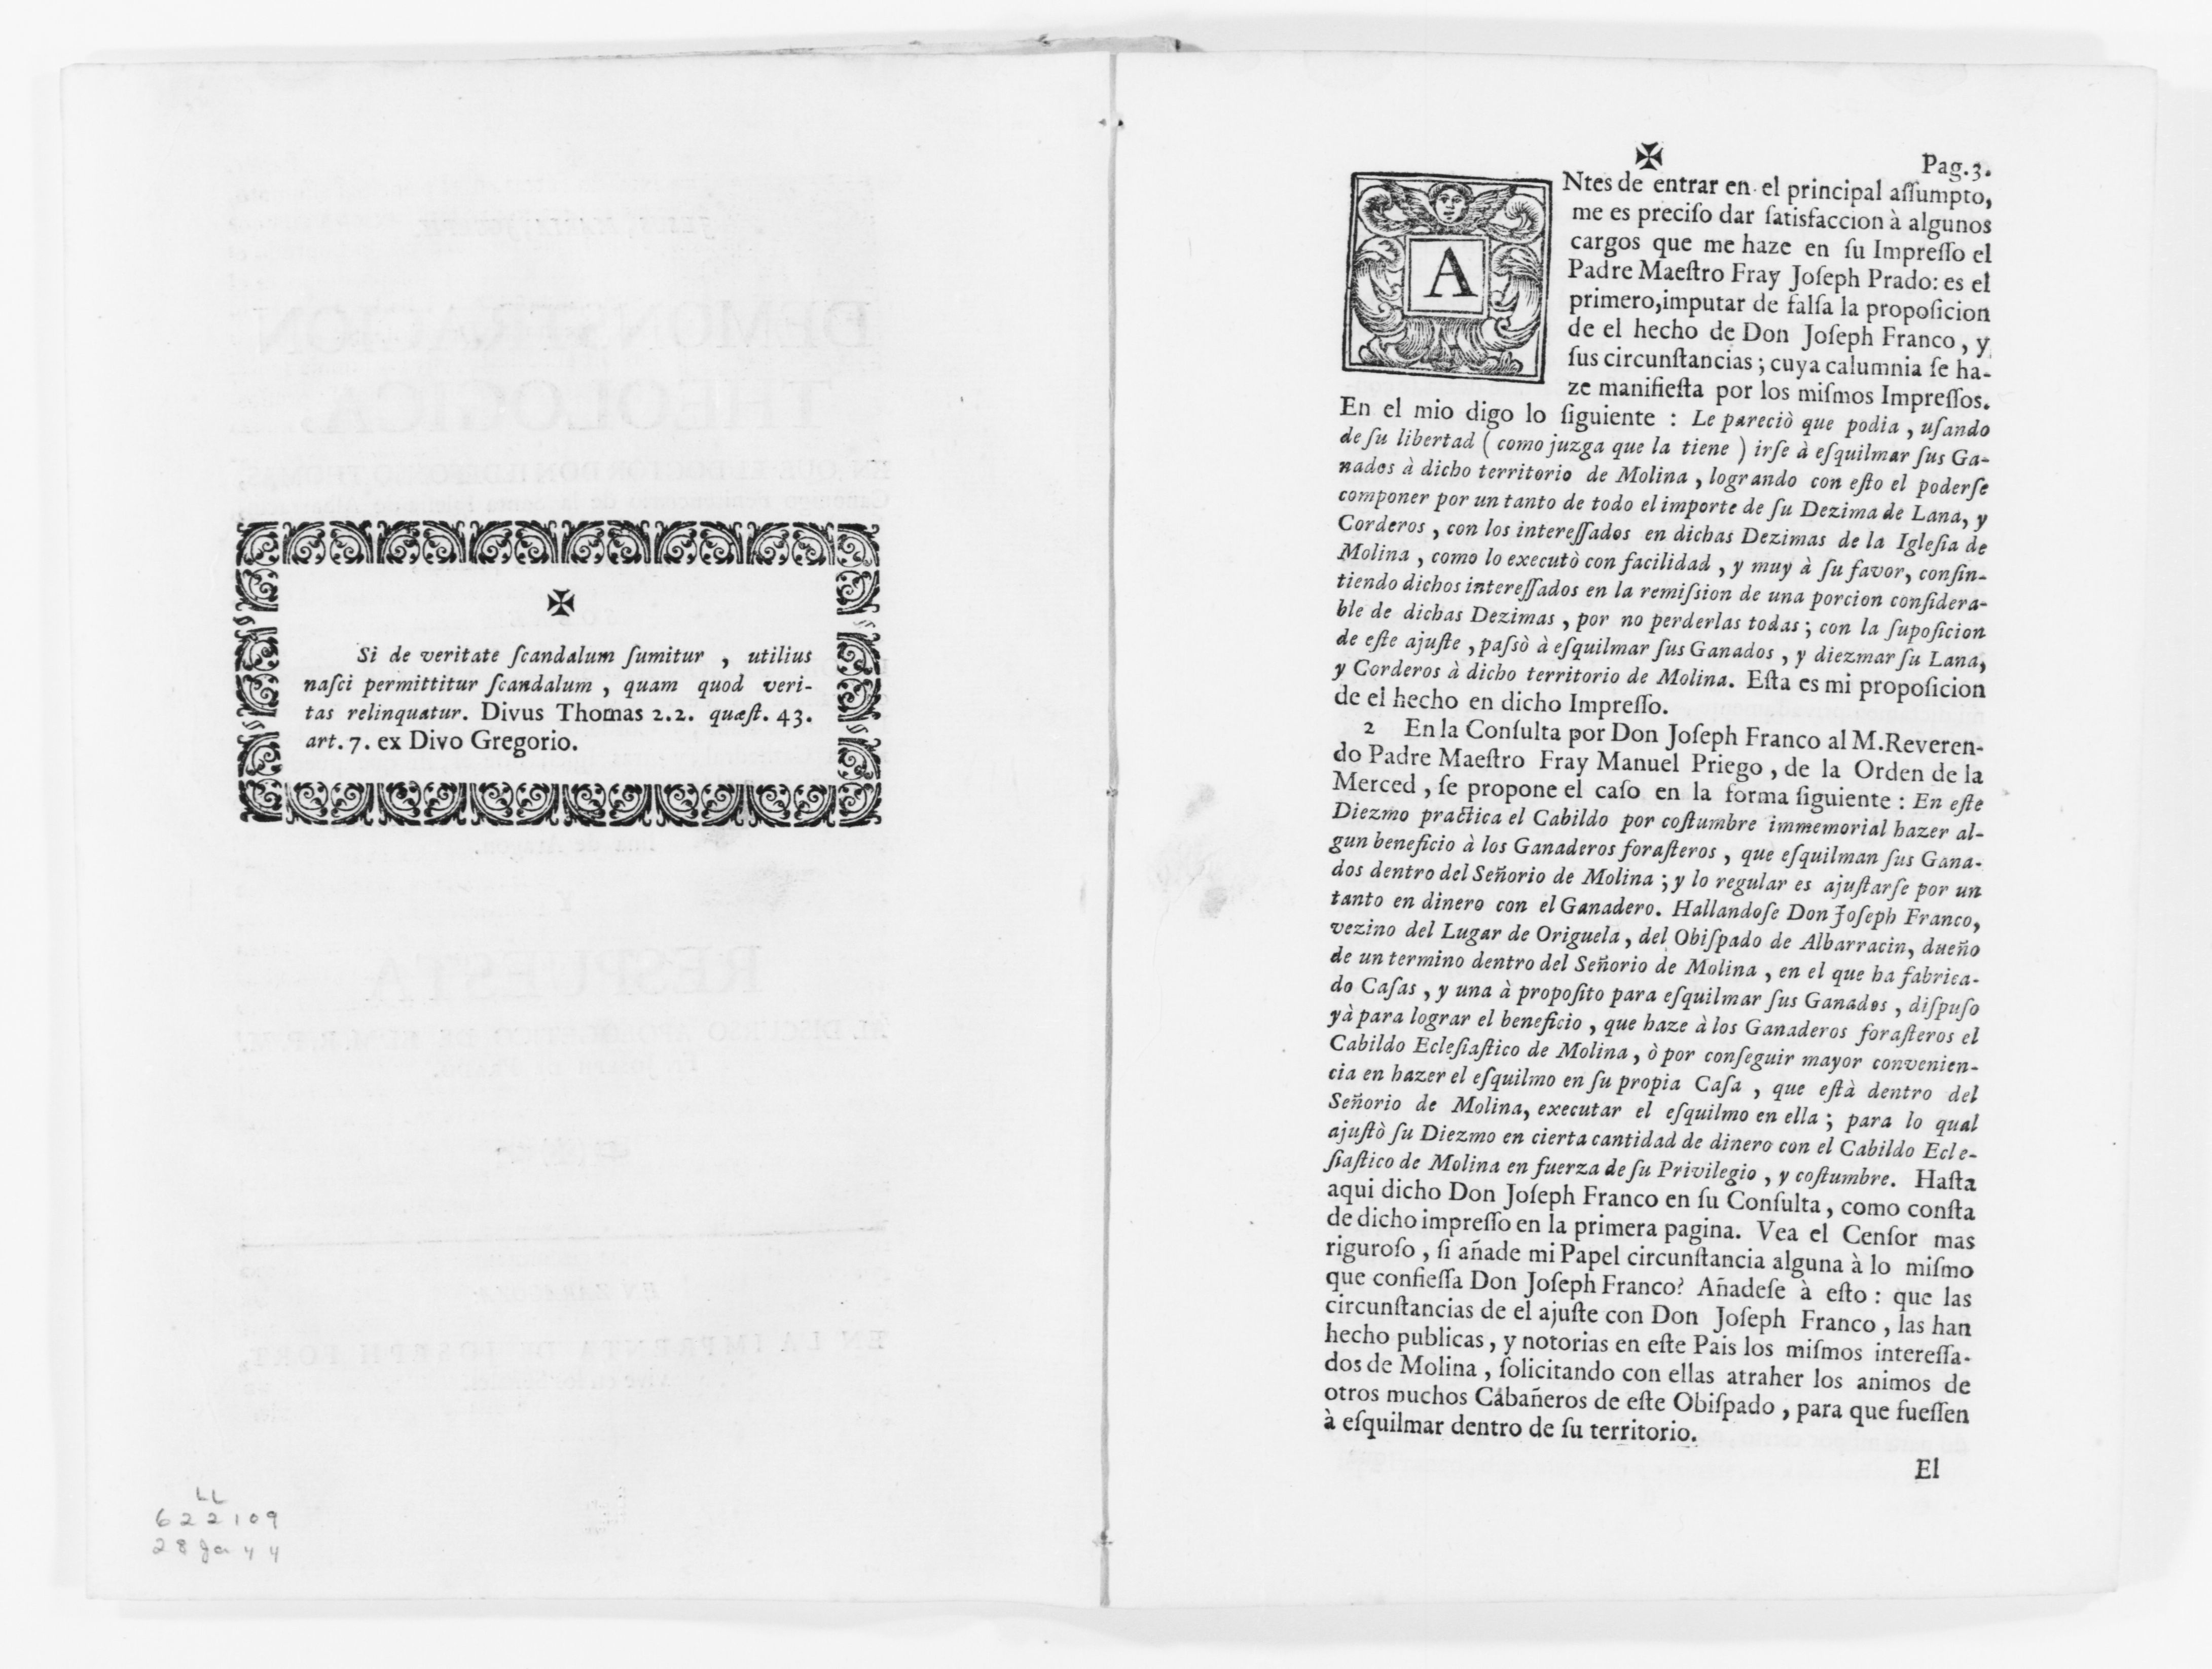 ✠
Si de veritate ſcandalum ſumitur , utilius
naſci permittitur ſcandalum , quam quod veri-
tas relinquatur. Divus Thomas 2.2. quæſt. 43.
art. 7. ex Divo Gregorio.
LL
622109
28 Ja 44
✠ Pag.3.
ANtes de entrar en el principal aſſumpto,
me es preciſo dar ſatisfaccion à algunos
cargos que me haze en ſu Impreſſo el
Padre Maeſtro Fray Joſeph Prado: es el
primero,imputar de falſa la propoſicion
de el hecho de Don Joſeph Franco , y
ſus circunſtancias ; cuya calumnia ſe ha-
ze manifieſta por los miſmos Impreſſos.
En el mio digo lo ſiguiente : Le pareciò que podia , uſando
de ſu libertad ( como juzga que la tiene ) irſe à eſquilmar ſus Ga-
nados à dicho territorio de Molina , logrando con eſto el poderſe
componer por un tanto de todo el importe de ſu Dezima de Lana, y
Corderos , con los intereſſados en dichas Dezimas de la Igleſia de
Molina , como lo executò con facilidad , y muy à ſu favor, conſin-
tiendo dichos intereſſados en la remiſsion de una porcion conſidera-
ble de dichas Dezimas , por no perderlas todas ; con la ſupoſicion
de eſte ajuſte , paſsò à eſquilmar ſus Ganados , y diezmar ſu Lana,
y Corderos à dicho territorio de Molina. Eſta es mi propoſicion
de el hecho en dicho Impreſſo.
2 En la Conſulta por Don Joſeph Franco al M.Reveren-
do Padre Maeſtro Fray Manuel Priego , de la Orden de la
Merced , ſe propone el caſo en la forma ſiguiente : En eſte
Diezmo practica el Cabildo por coſtumbre immemorial hazer al-
gun beneficio à los Ganaderos foraſteros , que eſquilman ſus Gana-
dos dentro del Señorio de Molina ; y lo regular es ajuſtarſe por un
tanto en dinero con el Ganadero. Hallandoſe Don Joſeph Franco,
vezino del Lugar de Origuela , del Obiſpado de Albarracin, dueño
de un termino dentro del Señorio de Molina , en el que ha fabrica-
do Caſas , y una à propoſito para eſquilmar ſus Ganados , diſpuſo
yà para lograr el beneficio , que haze à los Ganaderos foraſteros el
Cabildo Ecleſiaſtico de Molina , ò por conſeguir mayor convenien-
cia en hazer el eſquilmo en ſu propia Caſa , que eſtà dentro del
Señorio de Molina, executar el eſquilmo en ella ; para lo qual
ajuſtò ſu Diezmo en cierta cantidad de dinero con el Cabildo Ecle-
ſiaſtico de Molina en fuerza de ſu Privilegio , y coſtumbre. Haſta
aqui dicho Don Joſeph Franco en ſu Conſulta , como conſta
de dicho impreſſo en la primera pagina. Vea el Cenſor mas
riguroſo , ſi añade mi Papel circunſtancia alguna à lo miſmo
que confieſſa Don Joſeph Franco? Añadeſe à eſto : que las
circunſtancias de el ajuſte con Don Joſeph Franco , las han
hecho publicas , y notorias en eſte Pais los miſmos intereſſa-
dos de Molina , ſolicitando con ellas atraher los animos de
otros muchos Cabañeros de eſte Obiſpado , para que fueſſen
à eſquilmar dentro de ſu territorio.
El